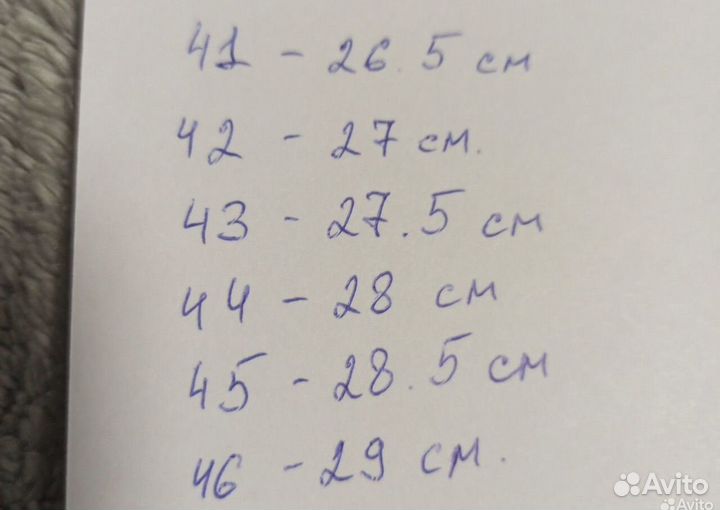 41 - 26.5 см
42 - 27 см.
43 - 27.5 см
44 - 28 см
45 - 28.5 см
46 - 29 см.
Avito
Avito